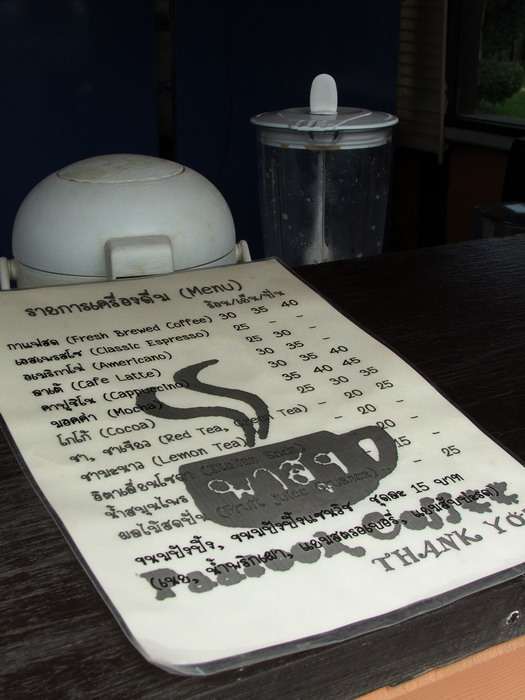 รายการเครื่องดื่ม (Menu)
ร้อน/เย็น/ปั่น
กาแฟสด (Fresh Brewed Coffee) 30 35 40
เอสเพรสโซ (Classic Espresso) 25 - -
อเมริกาโน่ (Americano) 25 30 -
ลาเต้ (Cafe Latte) 30 35 40
คาปูชิโน (Cappuccino) 30 35 40
มอคค่า (Mocha) 35 40 45
โกโก้ (Cocoa) 25 30 35
ชา, ชาเขียว (Red Tea, Green Tea) - 20 -
ชามะนาว (Lemon Tea) - 20 -
อิตาเลี่ยนโซดา (Italian Soda) - 20 -
น้ำสมุนไพร 15 -
ผลไม้สดปั่น (Fruit Juice - 25
ขนมปังปิ้ง, ขนมปังปิ้งแซนวิช ชุดละ 15 บาท
(เนย, น้ำพริกเผา, แยมสตรอเบอรี่, แยมสับปะรด)
Coffee
THANK YO